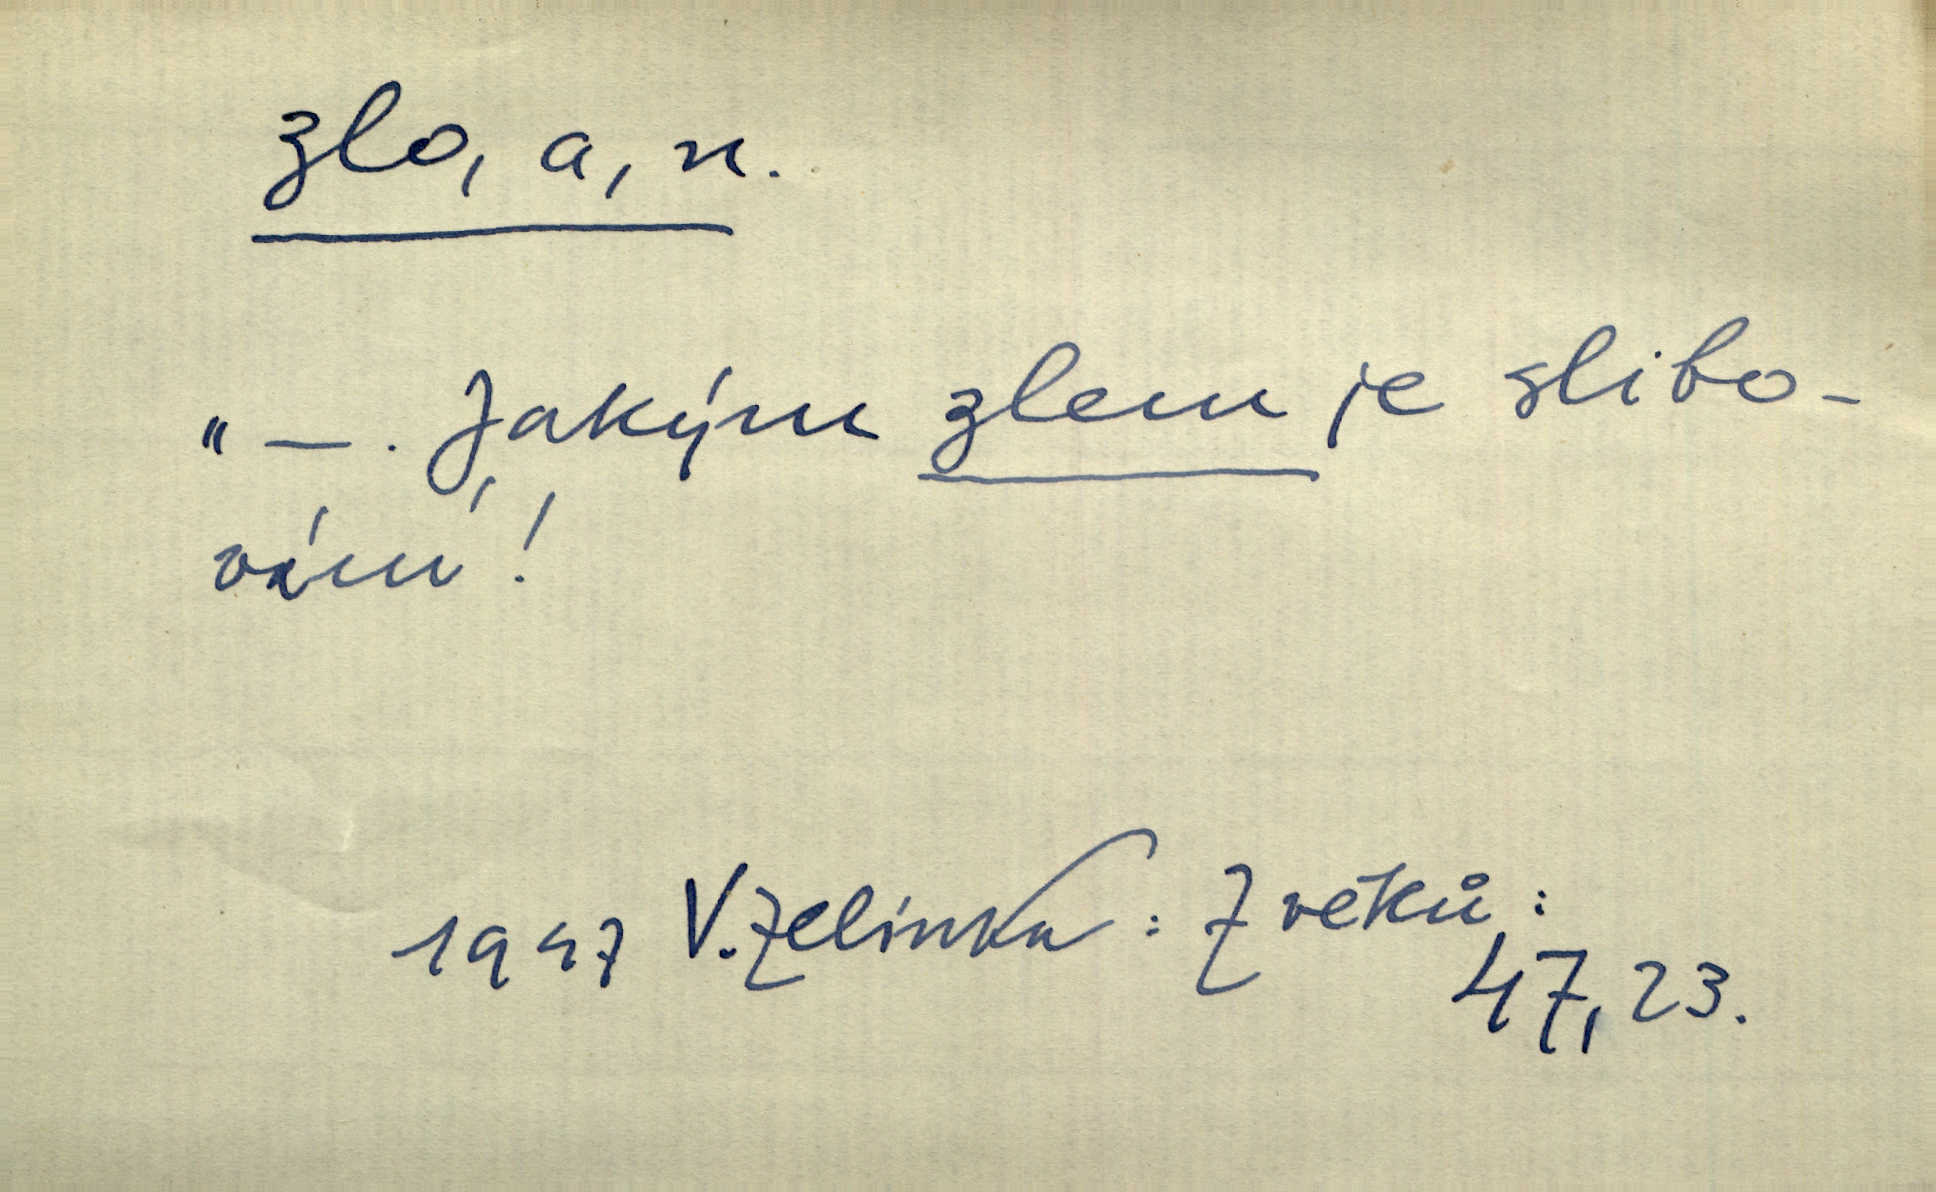 zlo, a, n.
„ — . Jakým zlem je slibo-
vání!
1947 V. Zelinka: Z věků:
47, 23.